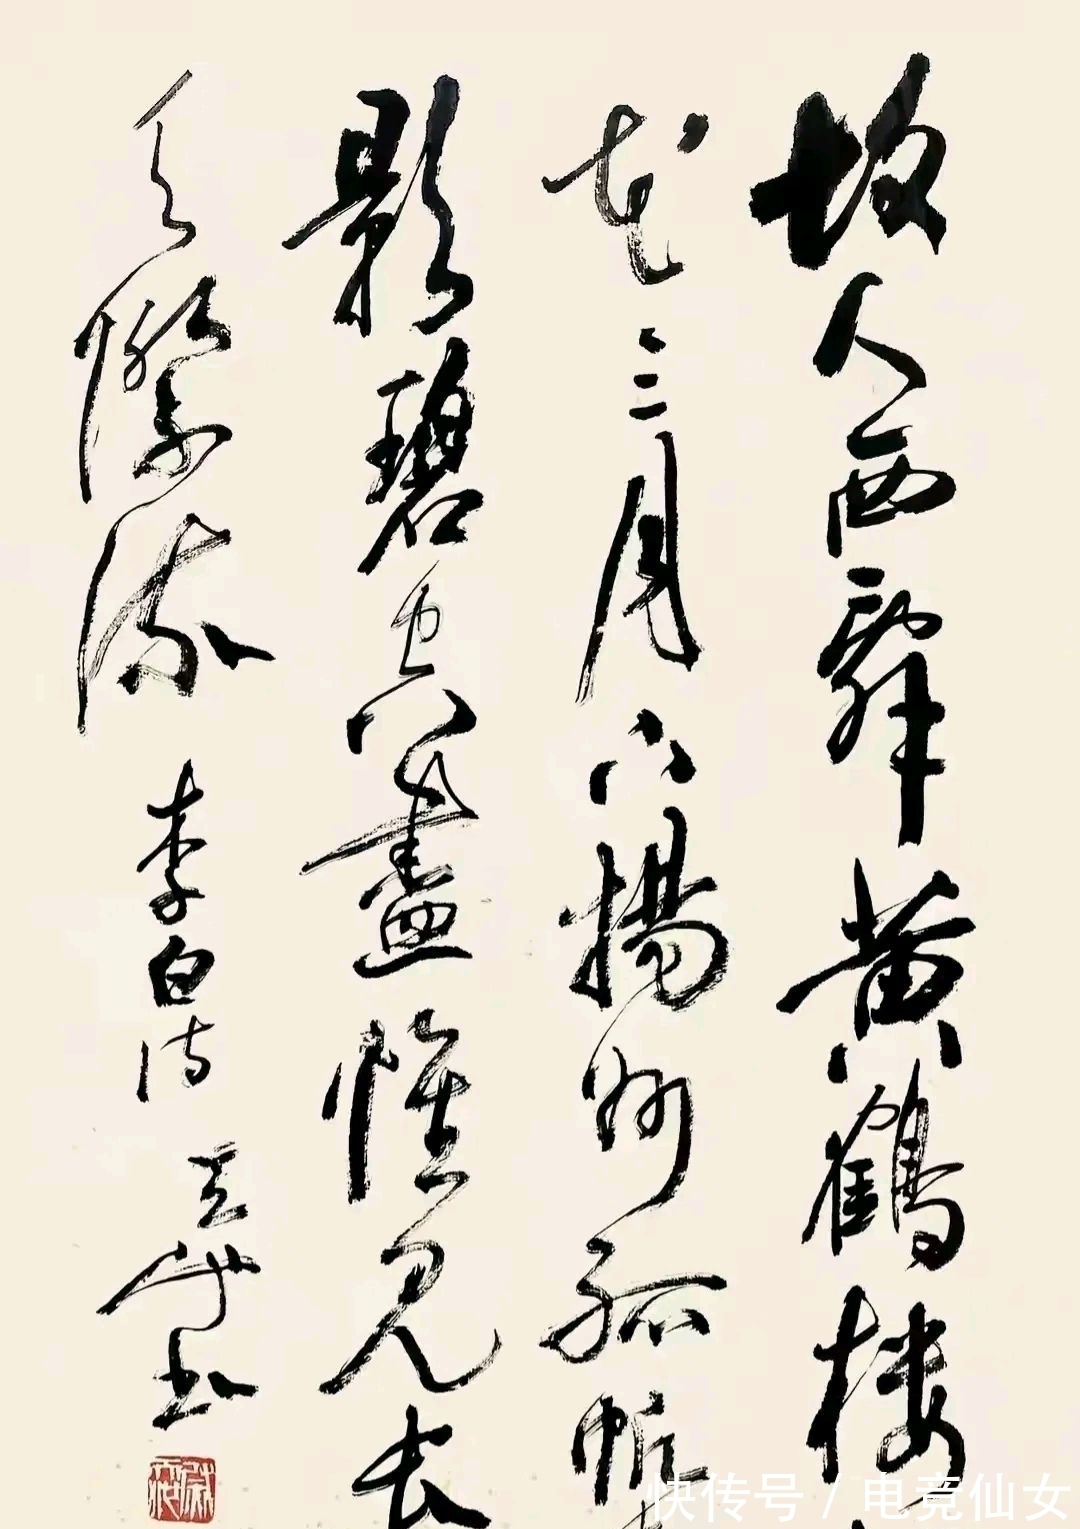 故人西辭黄鶴楼
花三月下揚州孤帆
影碧空盡惟见长
天際流
李白诗
书
快传号 / 电竞仙女